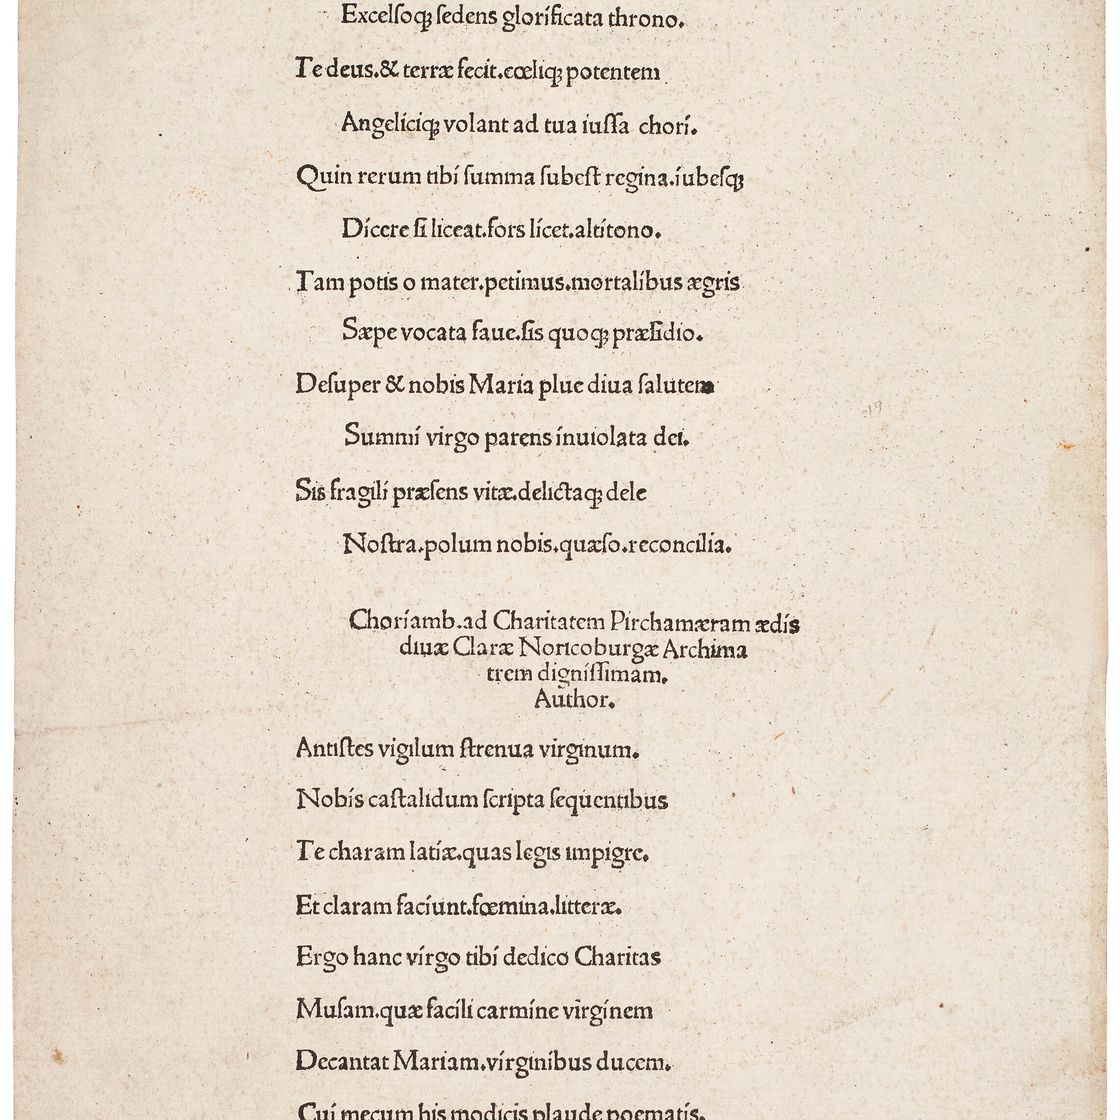 Excelſoqꝫ ſedens glorificata throno.
Te deus.& terræ fecit.cœliqꝫ potentem
Angeliciqꝫ volant ad tua iuſſa chori.
Quin rerum tibi ſumma ſubeſt regina.iubeſqꝫ
Dicere ſi liceat.fors licet.altitono.
Tam potis o mater.petimus.mortalibus ægris
Sæpe vocata faue.ſis quoqꝫ præſidio.
Deſuper & nobis Maria plue diua ſalutem
Summi virgo parens inuiolata dei.
Sis fragili præſens vitæ.delictaqꝫ dele
Noſtra.polum nobis.quæſo.reconcilia.
19
Choriamb.ad Charitatem Pirchamæram ædis
diuæ Claræ Noricoburgæ Archima
trem digniſſimam.
Author.
Antiſtes vigilum ſtrenua virginum.
Nobis caſtalidum ſcripta ſequentibus
Te charam latiæ.quas legis impigre.
Et claram faciunt.fœmina.litteræ.
Ergo hanc virgo tibi dedico Charitas
Muſam.quæ facili carmine virginem
Decantat Mariam.virginibus ducem.
Cui mecum his modicis plaude poematis.